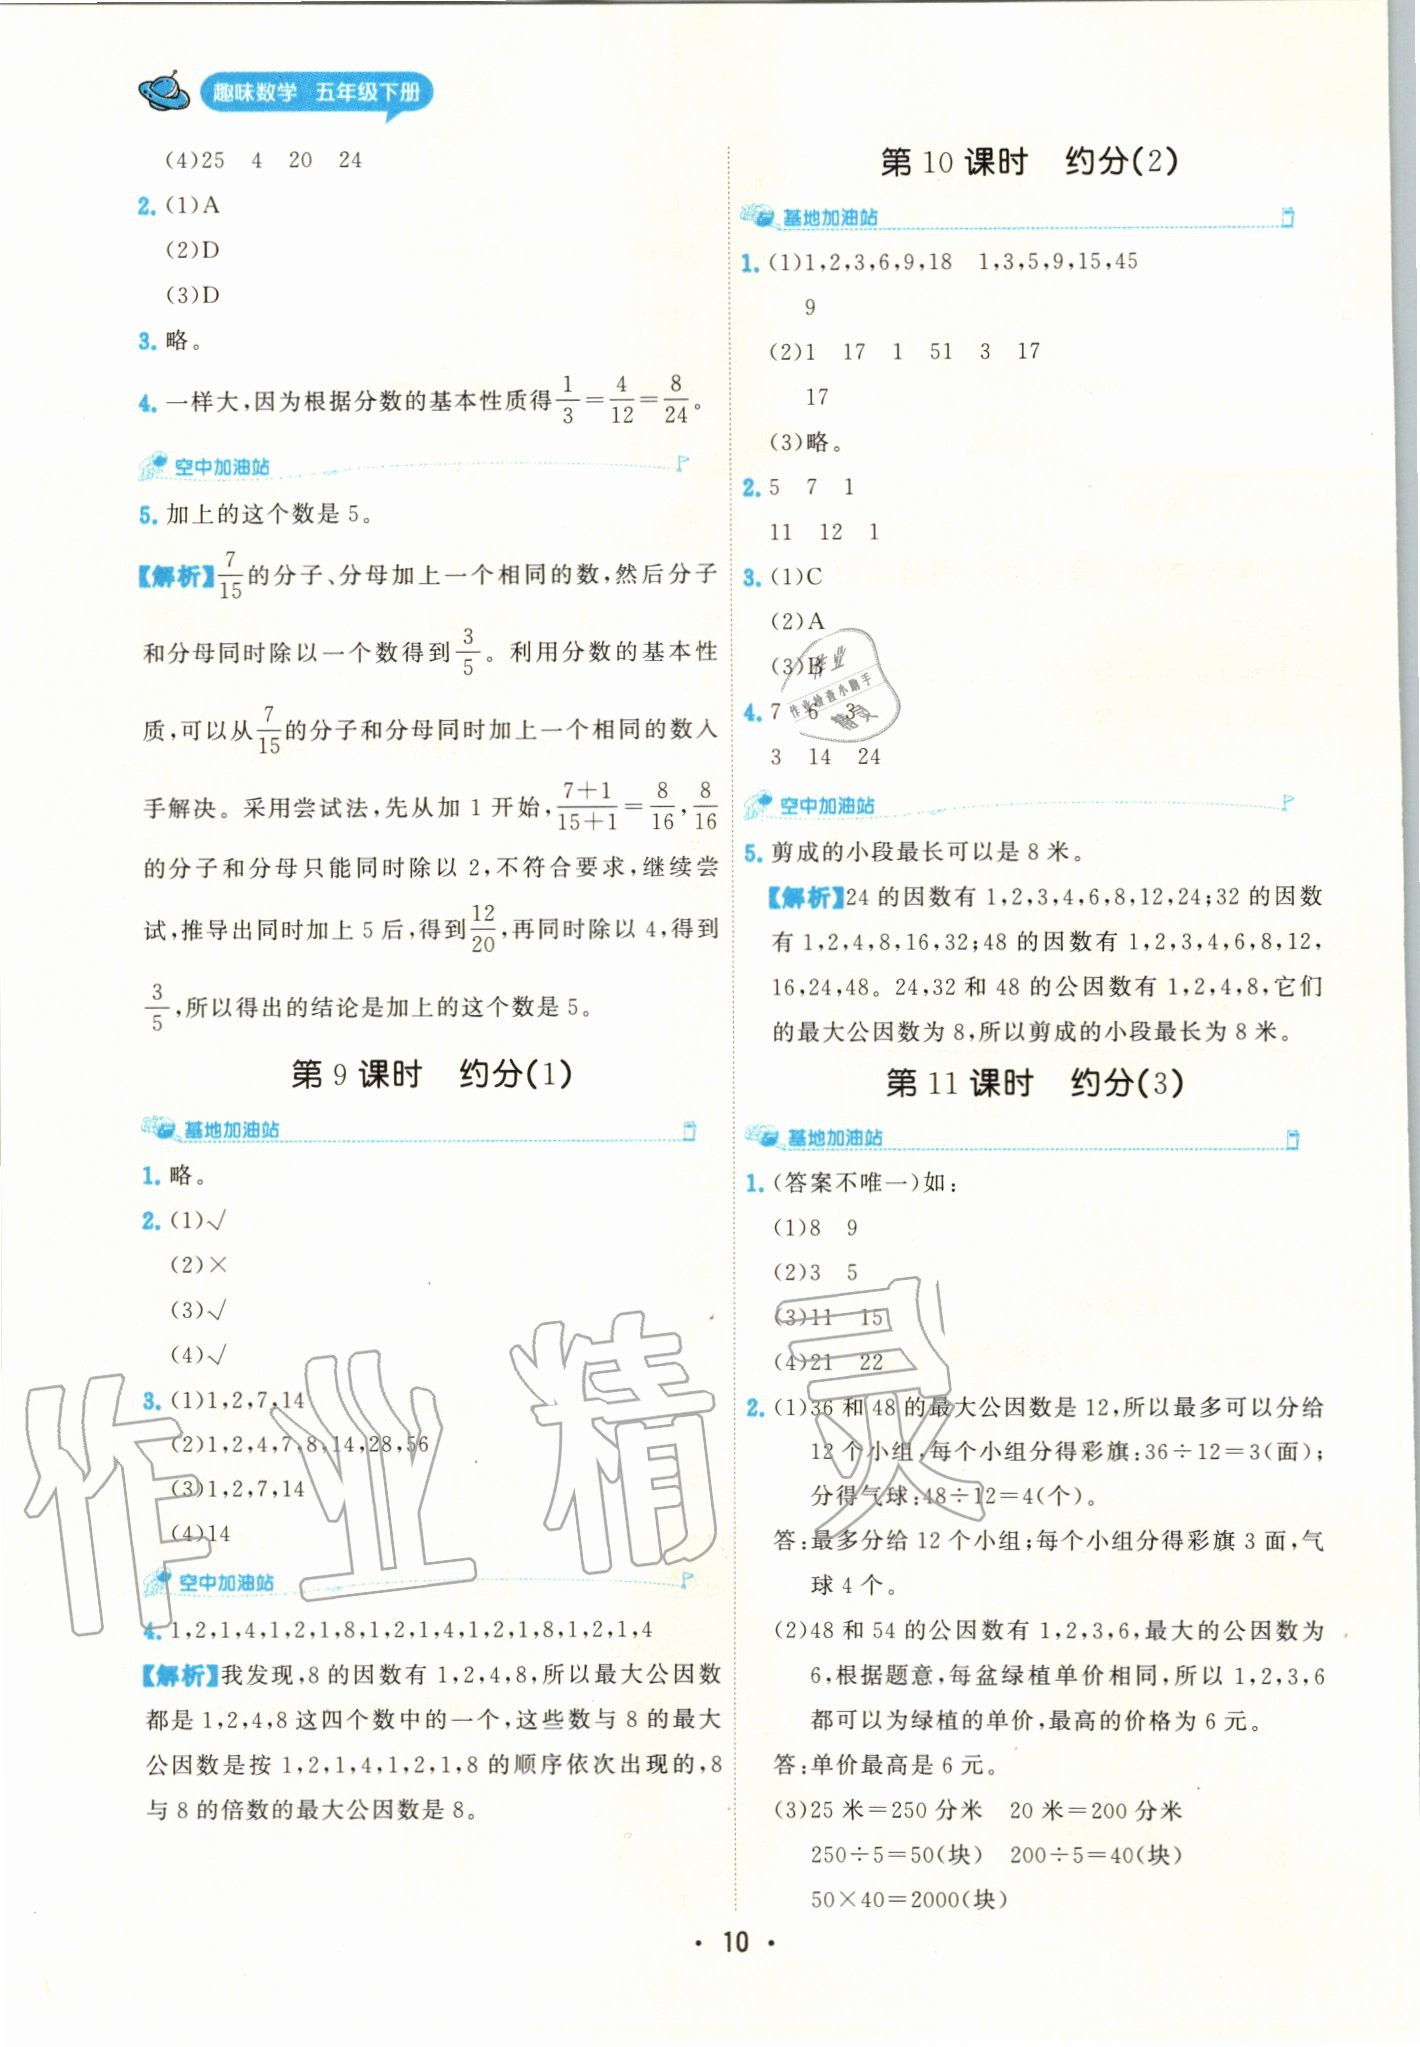 趣味数学 五年级下册
(4)25 4 20 24
2. (1)A
(2)D
(3)D
3. 略。
4. 一样大,因为根据分数的基本性质得1/3=4/12=8/24。
空中加油站
5. 加上的这个数是 5。
【解析】7/15的分子、分母加上一个相同的数,然后分子
和分母同时除以一个数得到3/5。利用分数的基本性
质,可以从7/15的分子和分母同时加上一个相同的数入
手解决。采用尝试法,先从加 1 开始,(7+1)/(15+1)=8/16,8/16
的分子和分母只能同时除以 2,不符合要求,继续尝
试,推导出同时加上 5 后,得到12/20,再同时除以 4,得到
3/5,所以得出的结论是加上的这个数是 5。
第 9 课时 约分(1)
基地加油站
1. 略。
2. (1)√
(2)×
(3)√
(4)√
3. (1)1,2,7,14
(2)1,2,4,7,8,14,28,56
(3)1,2,7,14
(4)14
空中加油站
4. 1,2,1,4,1,2,1,8,1,2,1,4,1,2,1,8,1,2,1,4
【解析】我发现,8 的因数有 1,2,4,8,所以最大公因数
都是 1,2,4,8 这四个数中的一个,这些数与 8 的最大
公因数是按 1,2,1,4,1,2,1,8 的顺序依次出现的,8
与 8 的倍数的最大公因数是 8。
第 10 课时 约分(2)
基地加油站
1. (1)1,2,3,6,9,18 1,3,5,9,15,45
9
(2)1 17 1 51 3 17
17
(3)略。
2. 5 7 1
11 12 1
3. (1)C
(2)A
(3)B
4. 7 6 3
3 14 24
空中加油站
5. 剪成的小段最长可以是 8 米。
【解析】24 的因数有 1,2,3,4,6,8,12,24;32 的因数
有 1,2,4,8,16,32;48 的因数有 1,2,3,4,6,8,12,
16,24,48。24,32 和 48 的公因数有 1,2,4,8,它们
的最大公因数为 8,所以剪成的小段最长为 8 米。
第 11 课时 约分(3)
基地加油站
1. (答案不唯一)如:
(1)8 9
(2)3 5
(3)11 15
(4)21 22
2. (1)36 和 48 的最大公因数是 12,所以最多可以分给
12 个小组,每个小组分得彩旗:36÷12=3(面);
分得气球:48÷12=4(个)。
答:最多分给 12 个小组;每个小组分得彩旗 3 面,气
球 4 个。
(2)48 和 54 的公因数有 1,2,3,6,最大的公因数为
6,根据题意,每盆绿植单价相同,所以 1,2,3,6
都可以为绿植的单价,最高的价格为 6 元。
答:单价最高是 6 元。
(3)25 米=250 分米 20 米=200 分米
250÷5=50(块) 200÷5=40(块)
50×40=2000(块)
· 10 ·
作业
作业检查小助手
精灵
作业精灵